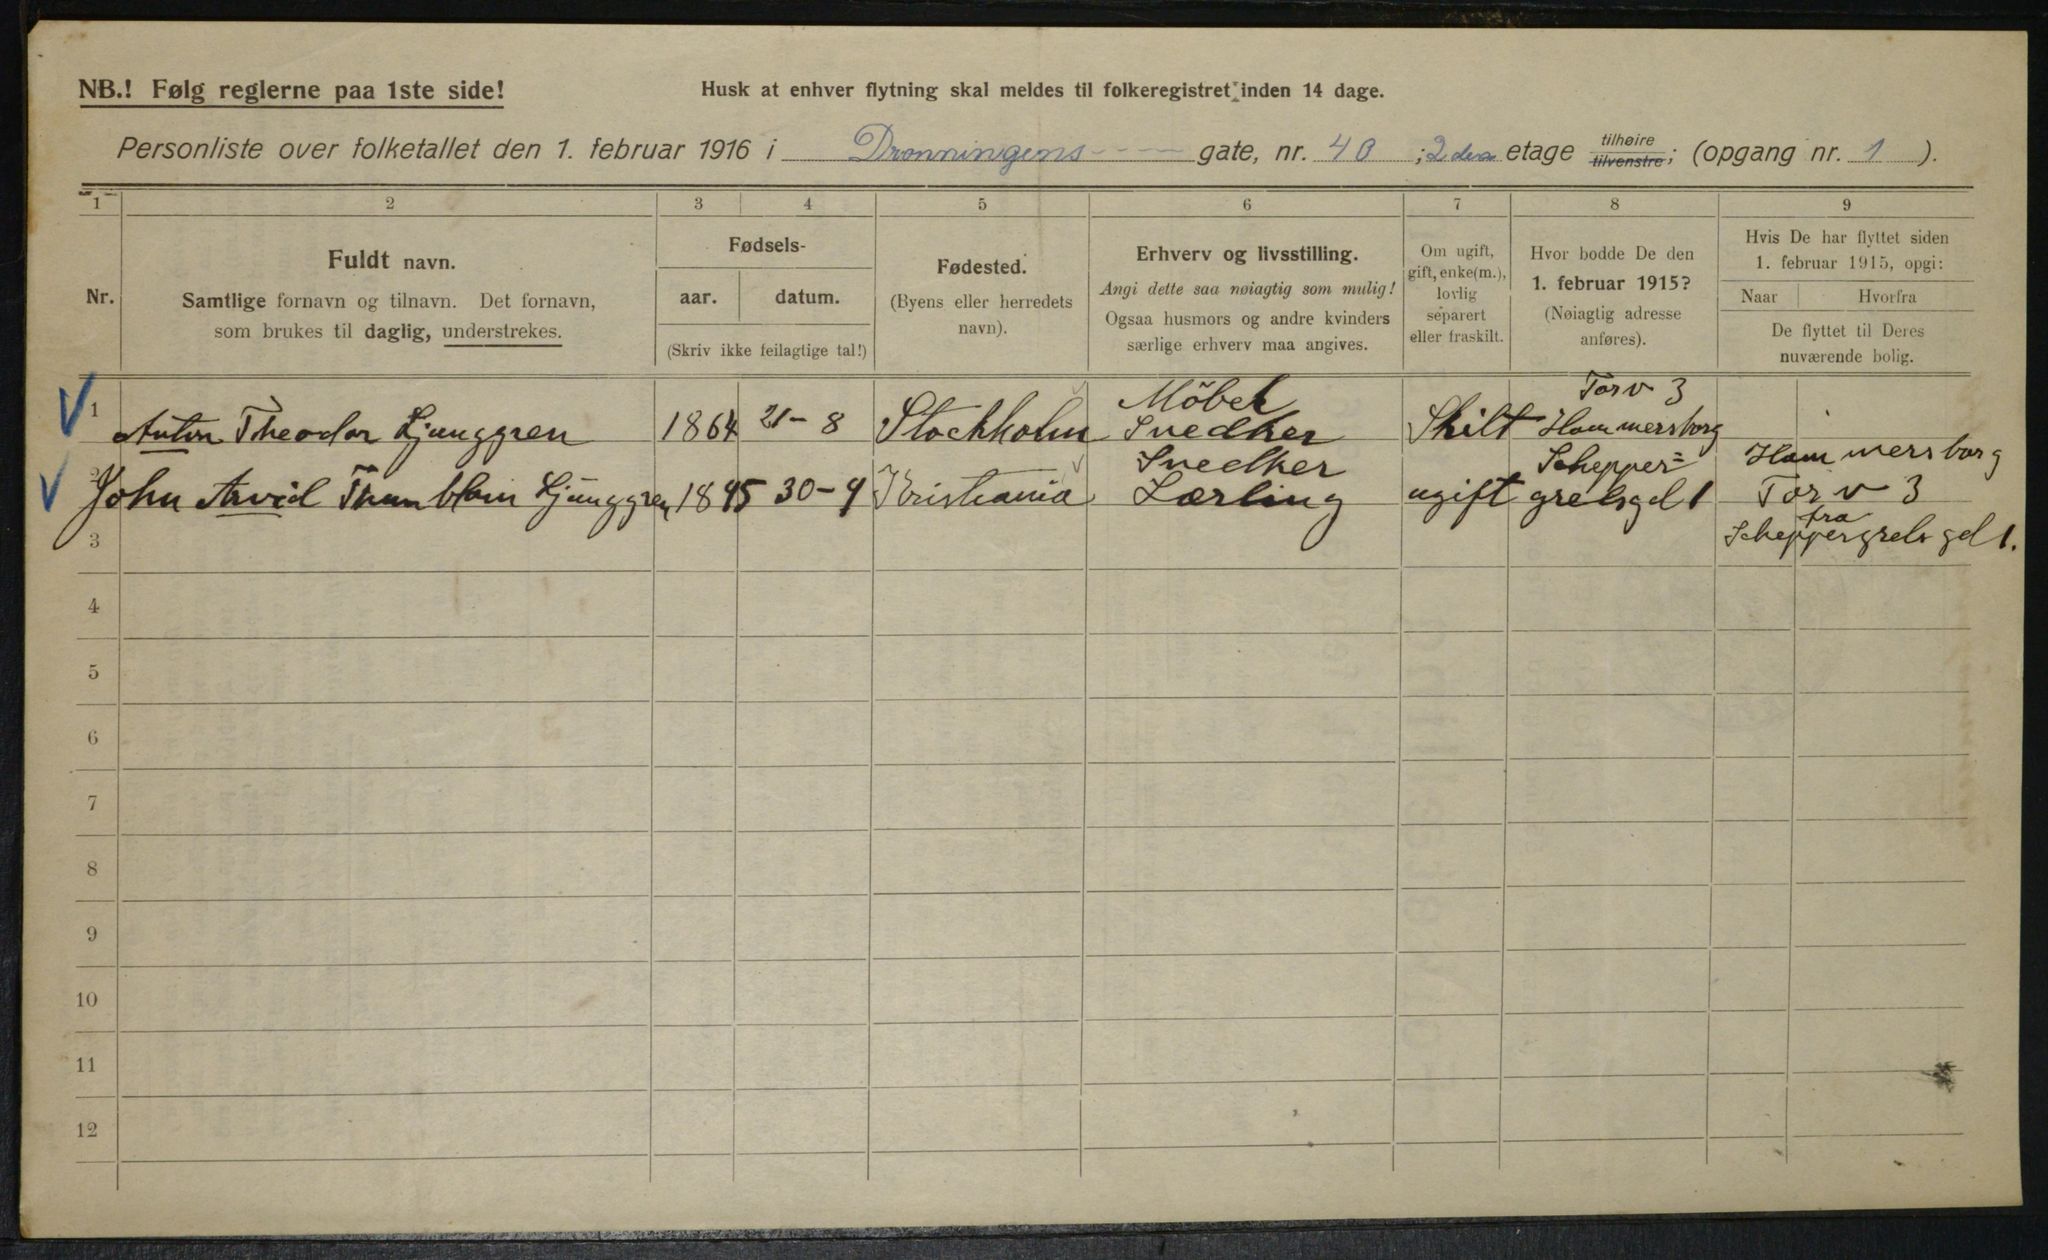 NB.! Følg reglerne paa 1ste side!
Husk at enhver flytning skal meldes til folkeregistret inden 14 dage.
Personliste over folketallet den 1. februar 1916 i Dronningens gate, nr. 40; 2den etage tilhøire tilvenstre; (opgang nr. 1).
1 2 3 4 5 6 7 8 9
Nr.
Fuldt navn.
Samtlige fornavn og tilnavn. Det fornavn,
som brukes til daglig, understrekes.
Fødsels-
aar. datum.
(Skriv ikke feilagtige tal!)
Fødested.
(Byens eller herredets
navn).
Erhverv og livsstilling.
Angi dette saa nøiagtig som mulig!
Ogsaa husmors og andre kvinders
særlige erhverv maa angives.
Om ugift,
gift, enke(m.),
lovlig
separert
eller fraskilt.
Hvor bodde De den
1. februar 1915?
(Nøiagtig adresse
anføres).
Hvis De har flyttet siden
1. februar 1915, opgi:
Naar Hvorfra
De flyttet til Deres
nuværende bolig.
Möbel Torv 3
1 Anton Theodor Ljunggren 1864 21-8 Stockholm Snedker Skilt Hammersborg
Snedker Schepper= Hammersborg
2 John Arvid Ljunggren 1895 30-9 Kristiania Lærling ugift grelsgd 1 Torv 3
fra
3 Scheppergrels gd 1.
4
5
6
7
8
9
10
11
12